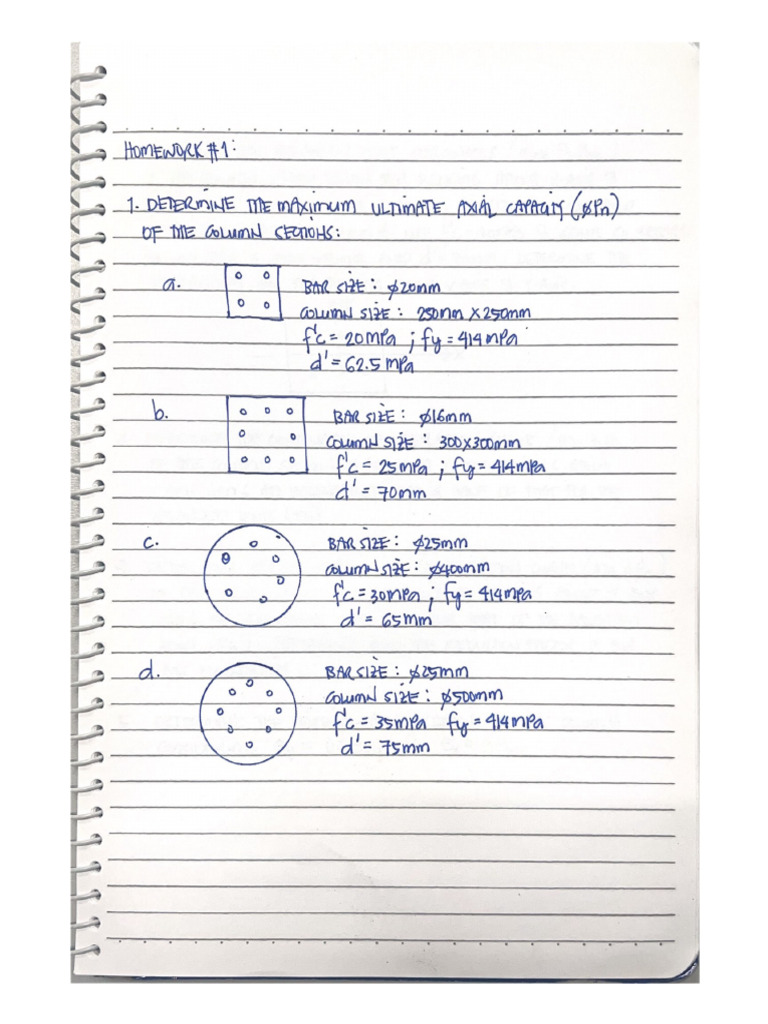 HOMEWORK #1:
1. DETERMINE THE MAXIMUM ULTIMATE AXIAL CAPACITY (φPn)
OF THE COLUMN SECTIONS:
a. BAR SIZE: φ20mm
COLUMN SIZE: 250mm X 250mm
f'c = 20MPa ; fy = 414MPa
d' = 62.5 MPa
b. BAR SIZE: φ16mm
COLUMN SIZE: 300X300mm
f'c = 25MPa ; fy = 414MPa
d' = 70mm
c. BAR SIZE: φ25mm
COLUMN SIZE: φ400mm
f'c = 30MPa ; fy = 414MPa
d' = 65mm
d. BAR SIZE: φ25mm
COLUMN SIZE: φ500mm
f'c = 35MPa fy = 414MPa
d' = 75mm